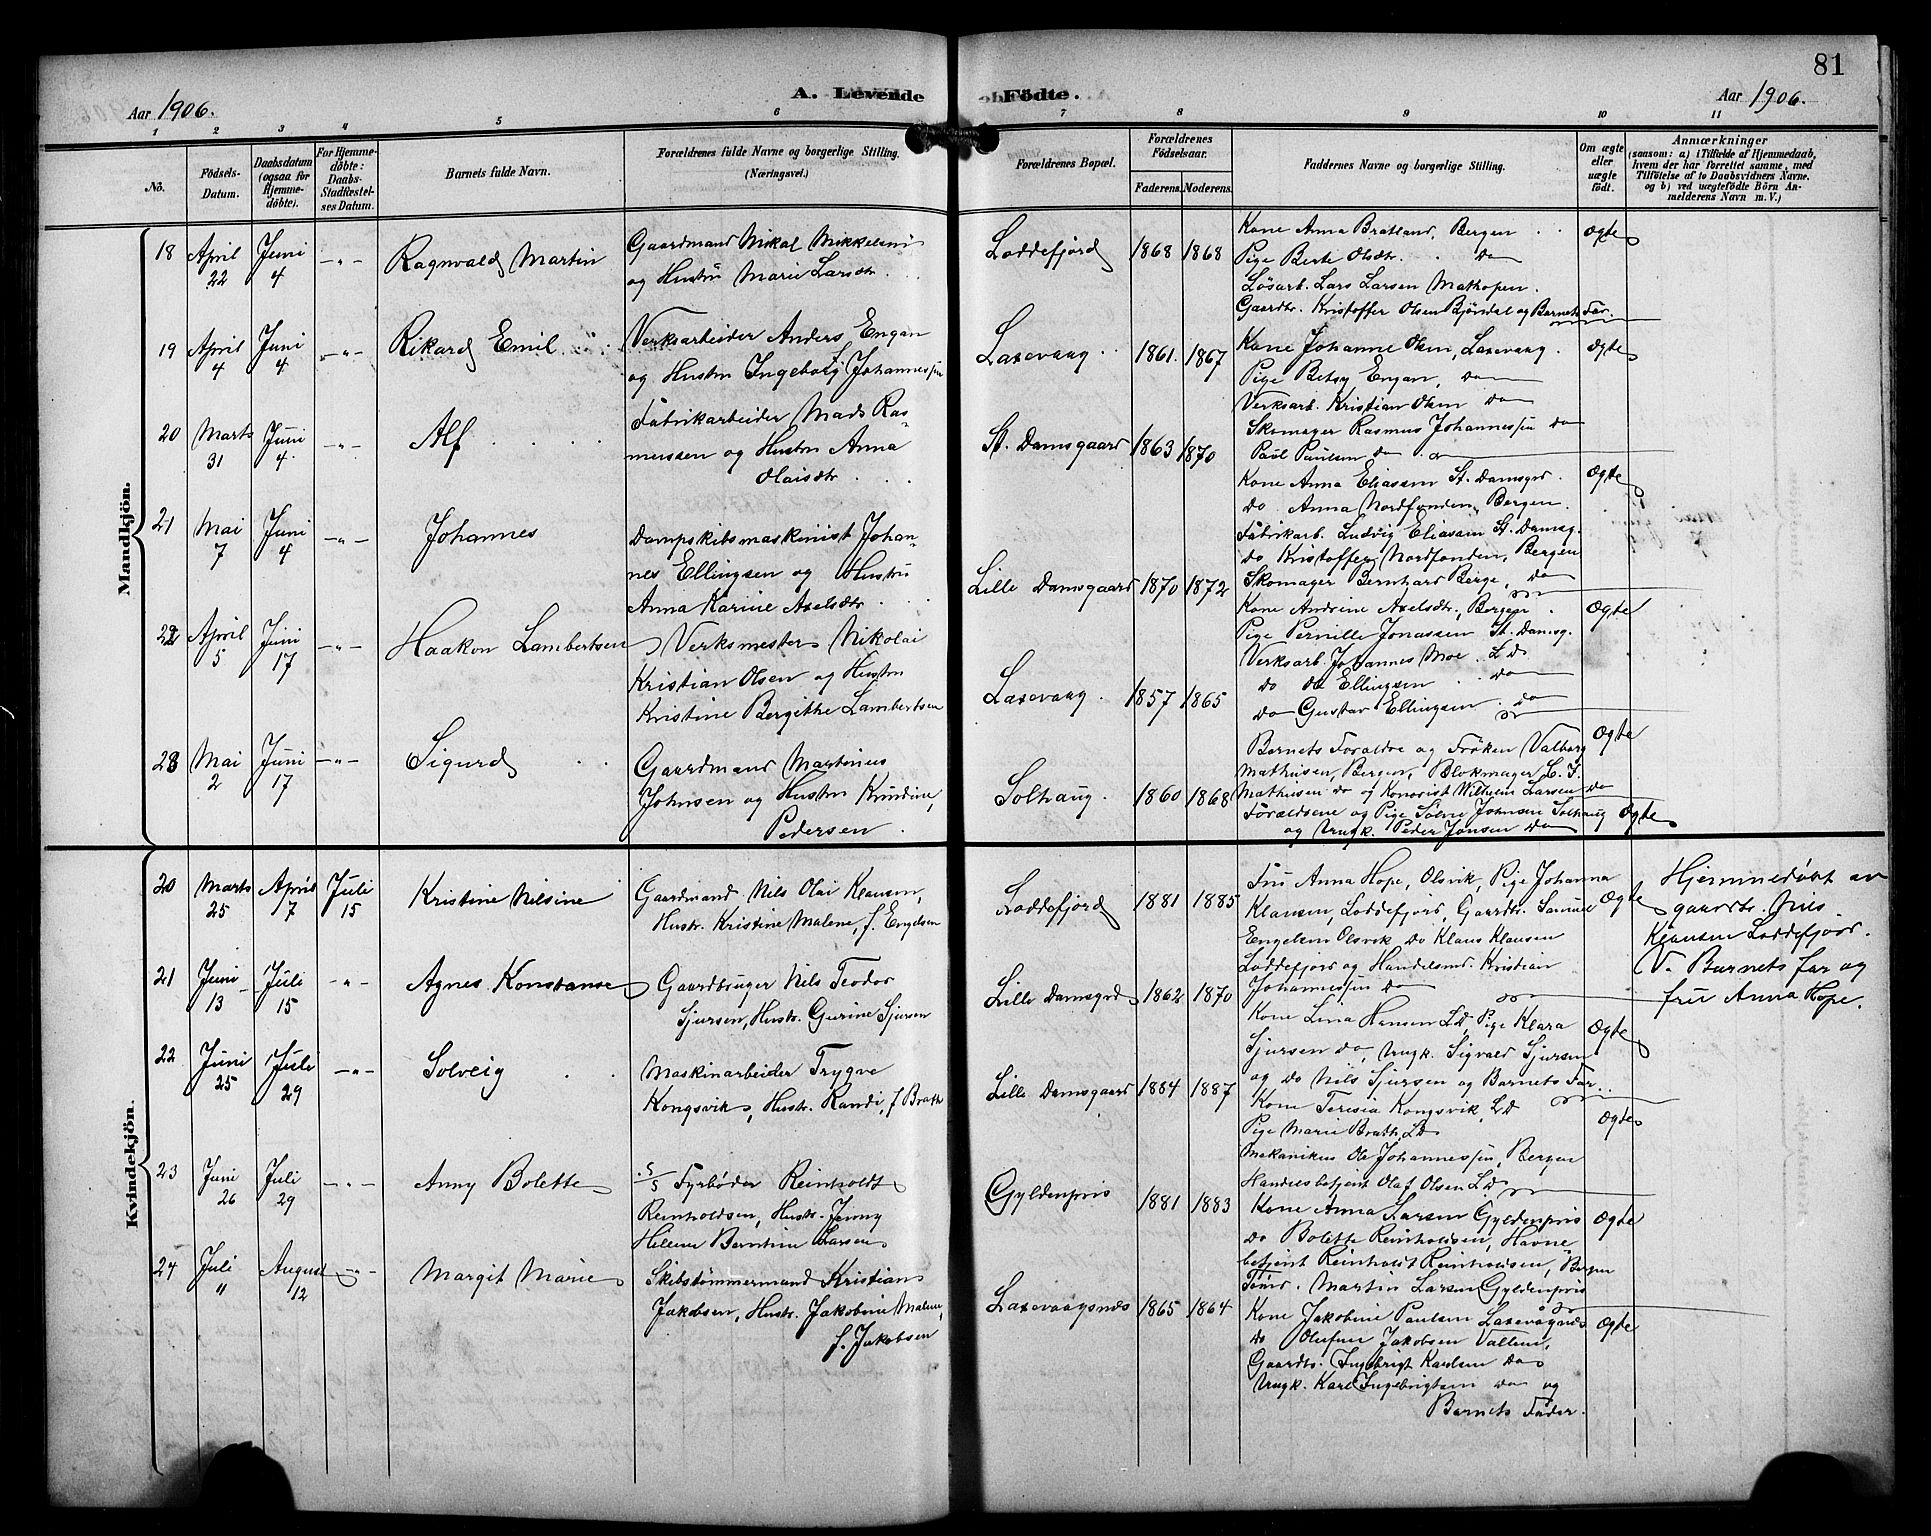 81
Aar 1906.
A. Levende Födte.
Aar 1906.
1 2 3 4 5 6 7 8 9 10 11
No.
Födsels-
Datum.
Daabsdatum
(ogsaa for
Hjemme-
döbte).
For Hjemme-
döbte:
Daabs-
Stadfæstel-
ses Datum.
Barnets fulde Navn.
Forældrenes fulde Navne og borgerlige Stilling.
(Næringsvei.)
Forældrenes Bopæl.
Forældrenes
Födselsaar.
Faderens. Moderens.
Faddernes Navne og borgerlige Stilling.
Om ægte
eller
uægte
födt.
Anmærkninger
(saasom: a) i Tilfælde af Hjemmedaab,
hvem der har forrettet samme, med
Tilföielse af to Daabsvidners Navne.
og b) ved uægtefödte Börn An-
melderens Navn m. V.)
Mandkjön.
18 April 22 Juni 4 -"- Ragnvald Martin
Gaardmand Mikal Mikkelsen
og Hustru Marie Larsdtr.
Loddefjord 1868 1868
Kone Anna Bratland, Bergen
Pige Berte Olsdtr. do
Løsarb. Lars Larsen Mathopen.
Gaardbr. Kristoffer Olsen Bjørndal og Barnets Far.
Ægte
19 April 4 Juni 4 -"- Rikard Emil
Verksarbeider Anders Engan
og Hustru Ingeborg Johannessen
Laxevaag. 1861. 1867
Kone Johanne Olsen, Laxevaag.
Pige Betsy Engan, do
Verksarb. Kristian Olsen do
Skomager Rasmus Johannessen do
Paul Paulsen do
Ægte
20 Marts 31 Juni 4 -"- Alf
Fabrikarbeider Mads Ras-
mussen og Hustru Anna
Olaisdtr.
St. Damsgaard 1863 1870
Kone Anna Eliassen St. Damsgrd.
do. Anna Nordfonden, Bergen.
Fabrikarb. Ludvig Eliassen St. Damsg.
do Kristoffer Nordfonden, Bergen
Skomager Bernhard Berge, do
Ægte
21 Mai 7 Juni 4 -"- Johannes
Dampskibsmaskinist Johan-
nes Ellingsen og Hustru
Anna Karine Axelsdtr.
Lille Damsgaard 1870 1872
Kone Andrine Axelsdtr, Bergen.
Pige Pernille Jonassen St. Damsg.
Verksarb. Johannes Moe. L D
do do Ellingsen do
do Gustav Ellingsen. do
Ægte
22 April 5 Juni 17 -"- Haakon Lambertsen
Verksmester Nikolai
Kristian Olsen og Hustru
Kristine Bergithe Lambertsen
Laxevaag. 1857 1865
Barnets Foraldre og Frøken Valborg
Mathisen, Bergen, Blokmager L. J.
Mathisen do og Kontorist Wilhelm Larsen do
Ægte
23 Mai 2 Juni 17 -"- Sigurd
Gaardmand Martinus
Johnsen og Hustru Knudine
Pedersen
Solhaug. 1860 1868
Forældrene og Pige Solve Johnsen Solhaug
og Ungk. Peder Jonsen do
Ægte
Kvindekjön.
20 Marts 25 April 7 Juli 15 Kristine Nilsine
Gaardmand Nils Olai Klausen,
Hustr. Kristine Malene, f. Engelsen
Loddefjord 1881 1885
Fru Anna Hope, Olsvik, Pige Johanna
Klausen, Loddefjord, Gaardbr. Samuel
Engelsen Olsvik do Klaus Klausen
Loddefjord og Handelsmd. Kristian
Johannessen do
Ægte
Hjemmedøbt av
gaardbr. Nils
Klausen Loddefjord.
V. Barnets far og
fru Anna Hope.
21 Juni 13 Juli 15 -"- Agnes Konstanse
Gaardbruger Nils Teodor
Sjursen, Hustr. Gurine Sjursen
Lille Damsgrd 1862 1870
Kone Lina Hansen LD, Pige Klara
Sjursen do, Ungk. Sigvald Sjursen
og do Nils Sjursen og Barnets Far.
Ægte
22 Juni 25 Juli 29 -"- Solveig
Maskinarbeider Trygve
Kongsvik, Hustr. Randi, f Brath
Lille Damsgaard 1884 1887
Kone Teresia Kongsvik, LD
Pige Marie Brath, LD
Mekanikus Ole Johannessen, Bergen
Handelsbetjent Olaf Olsen LD
Ægte
23 Juni 26 Juli 29 -"- Anny Bolette
S/S Fyrbøder Reinholdt
Reinholdsen, Hustr. Jenny
Helene Berntine Larsen
Gyldenpris 1881 1883
Kone Anna Larsen Gyldenpris
do Bolette Reinholdsen, Havne
betjent Reinholdt Reinholdsen, Bergen
Tømd. Martin Larsen Gyldenpris
Ægte
24 Juli " August 12 -"- Margit Marie
Skibstømmermand Kristian
Jakobsen, Hustr. Jakobine Malene,
f. Jakobsen
Laxevaagsnæs 1865 1864
Kone Jakobine Paulsen Laxevågnæs
do Olufine Jakobsen Vallen,
Gaardbr. Ingebrigt Karlsen do
Ungk. Karl Ingebrigtsen do og
Barnets Fader.
Ægte